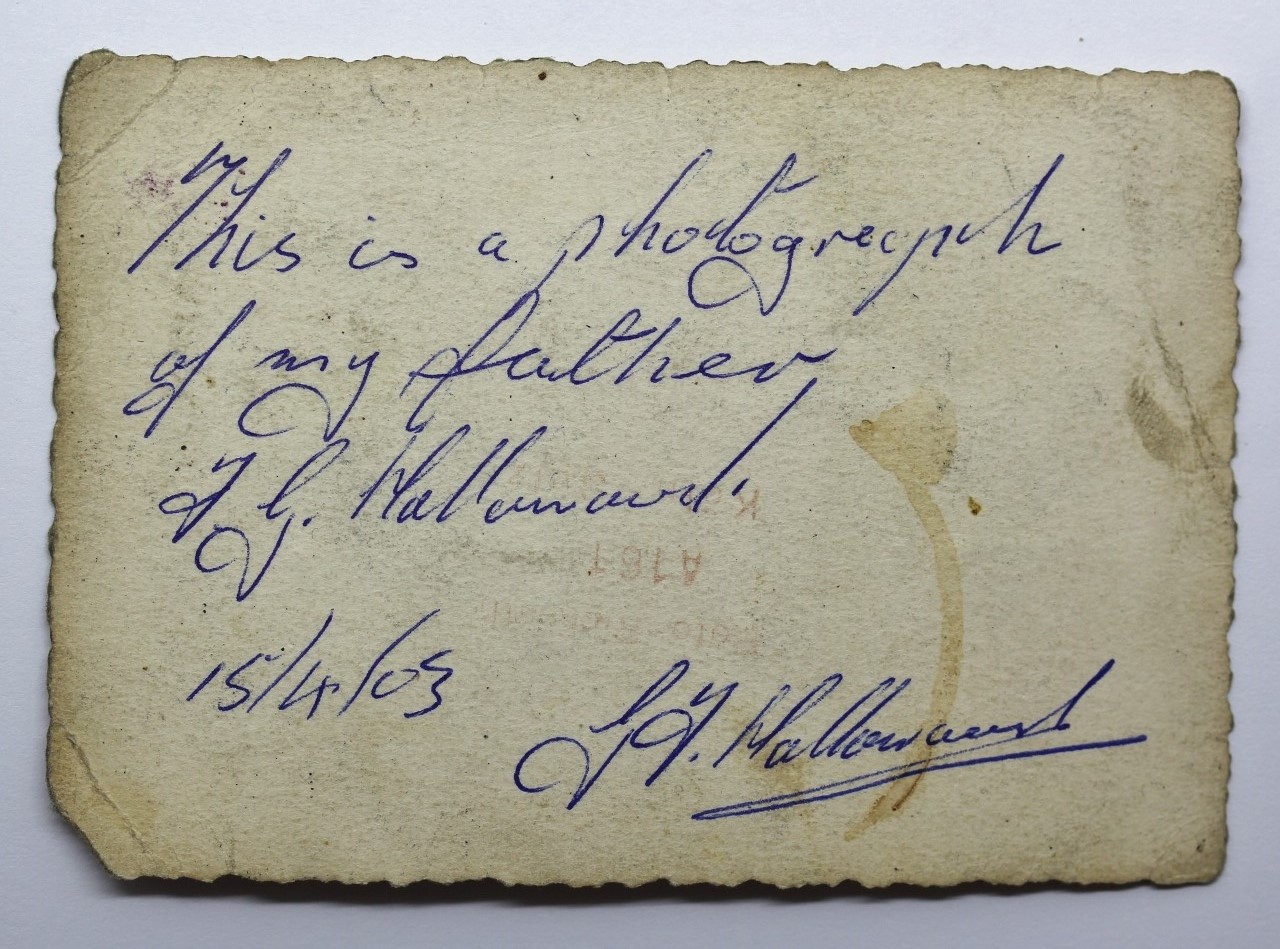 This is a photograph
of my father,
J G. Hallowaurd.
15/4/03
G J. Hallowaurd